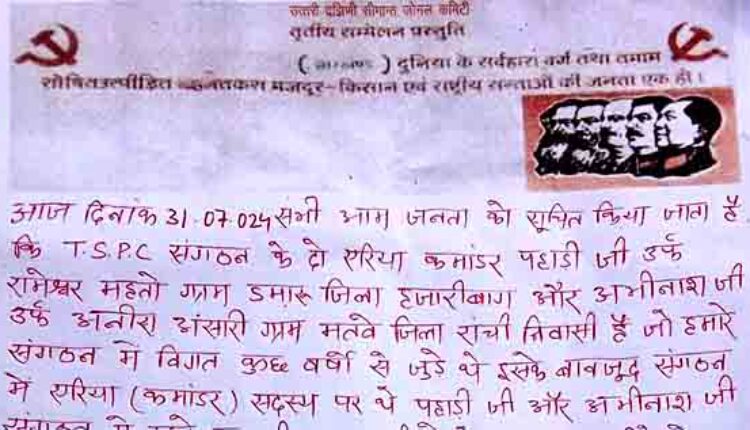 उत्तरी दक्षिणी सीमान्त जोनल कमिटी
तृतीय सम्मेलन प्रस्तुति
( झारखण्ड ) दुनिया के सर्वहारा वर्ग तथा तमाम
शोषितउत्पीड़ित मेहनतकश मजदूर-किसान एवं राष्ट्रीय सत्ताओं की जनता एक हो।
आज दिनांक 31.07.024 सभी आम जनता को सूचित किया जाता है
कि T.S.P.C संगठन के दो एरिया कमांडर पहाड़ी जी उर्फ
रामेश्वर महतो ग्राम डमारू जिला हजारीबाग और अभीनाश जी
उर्फ अनीश अंसारी ग्राम मतवे जिला रांची निवासी है जो हमारे
संगठन में विगत कुछ वर्षों से जुड़े थे इसके बावजूद संगठन
में एरिया (कमांडर) सदस्य पर थे पहाड़ी जी और अभीनाश जी